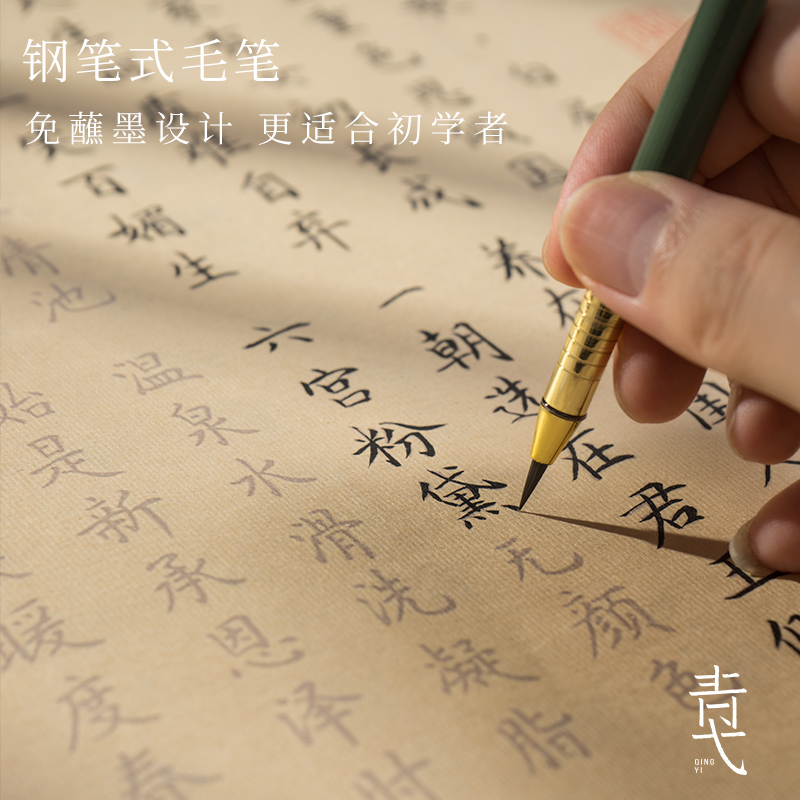 钢笔式毛笔
免蘸墨设计 更适合初学者
成
养在
闺
自弃
一朝选在君王
百媚生
六宫粉黛无颜色
清池
温泉水滑洗凝脂
始是新承恩泽时
暖度春
青弋
QING
YI